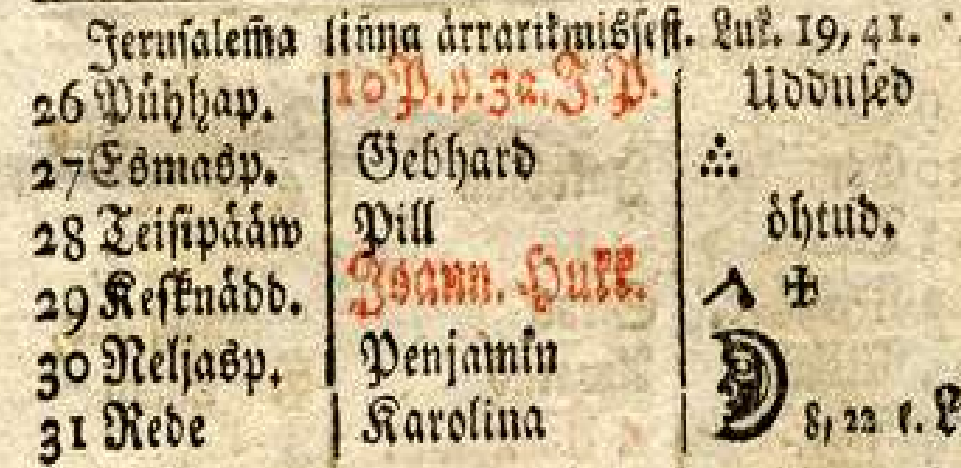 Jerusalem̃a liñna ärrarikmissest. Luk. 19, 41.
26 Pühhap. 10 P. p. 3a. J. P. Uddused
27 Esmasp. Gebhard
28 Teisipääw Pill öhtud.
29 Keſknädd. Joann. Hukk.
30 Neljasp. Penjamin
31 Rede Karolina 8, 22 e. L